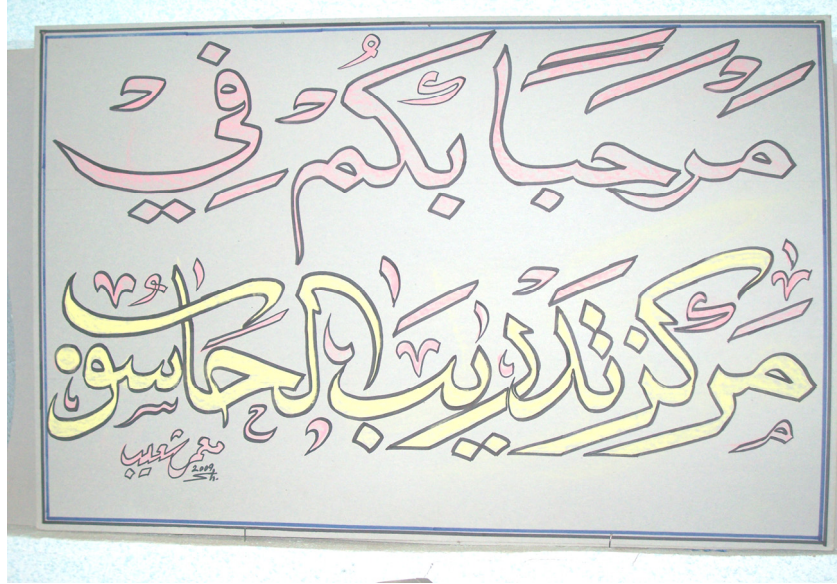 مَرْحَبًا بِكُمْ فِي
مَرْكَز تَدْرِيب الحَاسُوب
معمر شعيب
2009
Sh.